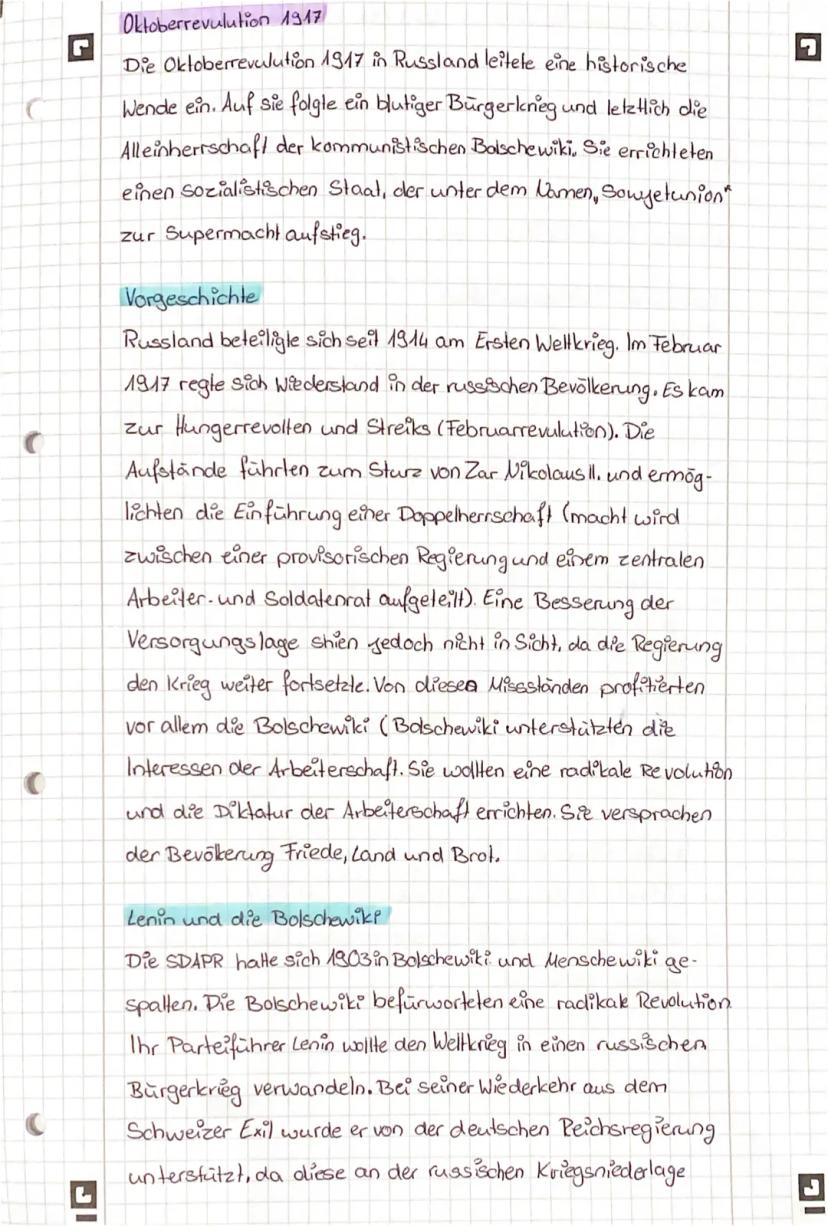 Oktoberrevulution 1917
Die Oktoberrevulution 1917 in Russland leitete eine historische
Wende ein. Auf sie folgte ein blutiger Bürgerkrieg und letztlich die
Alleinherrschaft der kommunistischen Bolschewiki. Sie errichteten
einen sozialistischen Staat, der unter dem Namen „Sowjetunion“
zur Supermacht aufstieg.
Vorgeschichte
Russland beteiligte sich seit 1914 am Ersten Weltkrieg. Im Februar
1917 regte sich Wiederstand in der russischen Bevölkerung. Es kam
zur Hungerrevolten und Streiks (Februarrevulution). Die
Aufstände führten zum Sturz von Zar Nikolaus II. und ermög-
lichten die Einführung einer Doppelherrschaft (macht wird
zwischen einer provisorischen Regierung und einem zentralen
Arbeiter- und Soldatenrat aufgeteilt). Eine Besserung der
Versorgungslage shien jedoch nicht in Sicht, da die Regierung
den Krieg weiter fortsetzte. Von diesen Missständen profitierten
vor allem die Bolschewiki (Bolschewiki unterstützten die
Interessen der Arbeiterschaft. Sie wollten eine radikale Revolution
und die Diktatur der Arbeiterschaft errichten. Sie versprachen
der Bevölkerung Friede, Land und Brot.
Lenin und die Bolschewiki
Die SDAPR hatte sich 1903 in Bolschewiki und Menschewiki ge-
spalten. Die Bolschewiki befürworteten eine radikale Revolution
Ihr Parteiführer Lenin wollte den Weltkrieg in einen russischen
Bürgerkrieg verwandeln. Bei seiner Wiederkehr aus dem
Schweizer Exil wurde er von der deutschen Reichsregierung
unterstützt, da diese an der russischen Kriegsniederlage